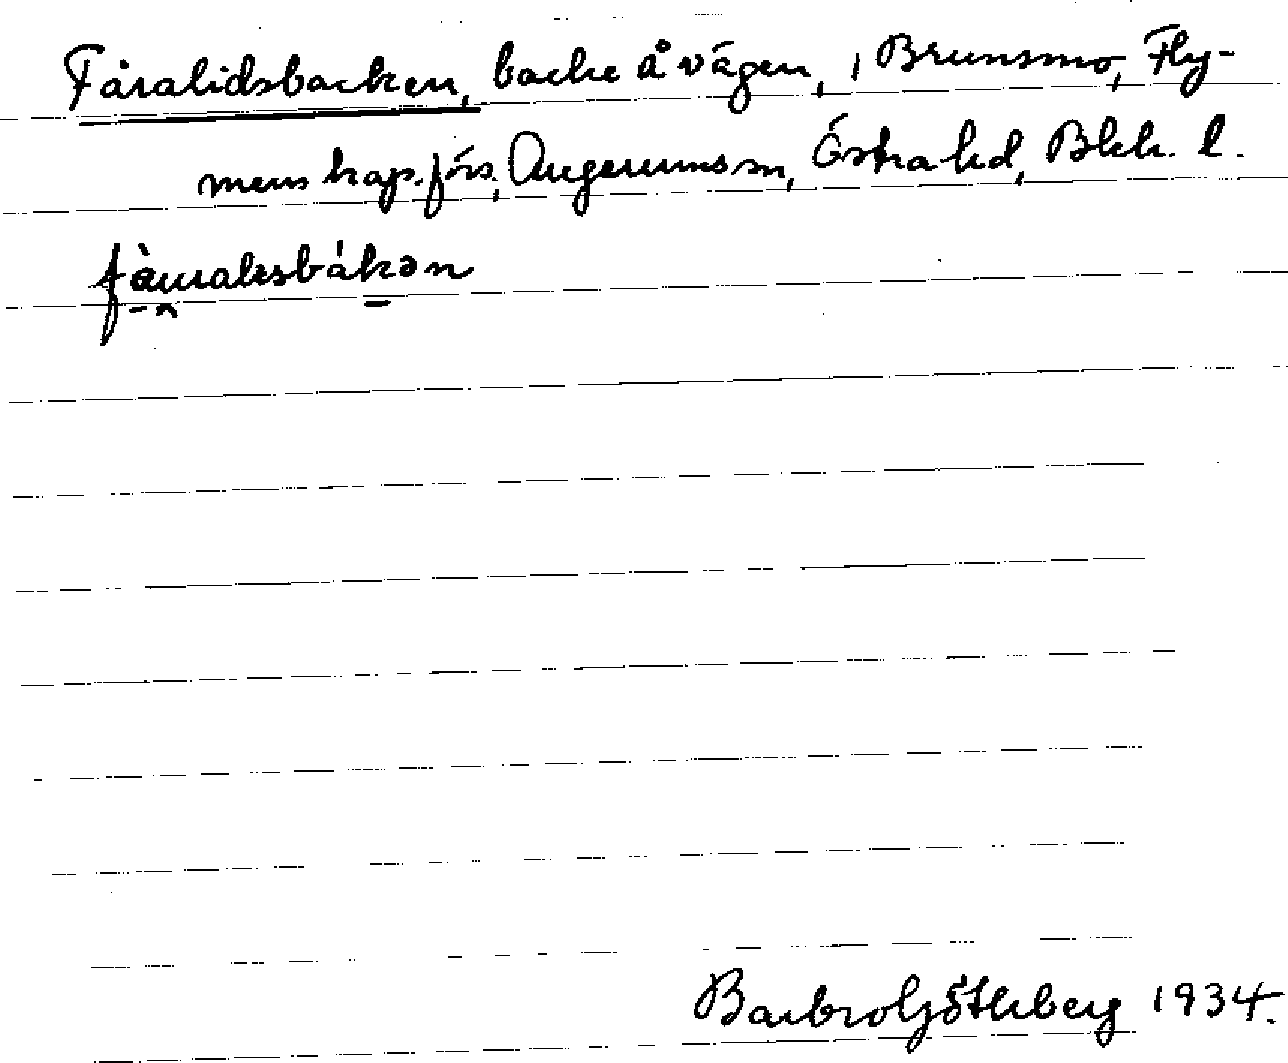 Fåralidsbacken, backe å vägen, i Brunsmo, Fly-
mens kap.förs, Augerums sn, Östra hd, Blek. l.
fàuralesbákən
Barbro Götheberg 1934.